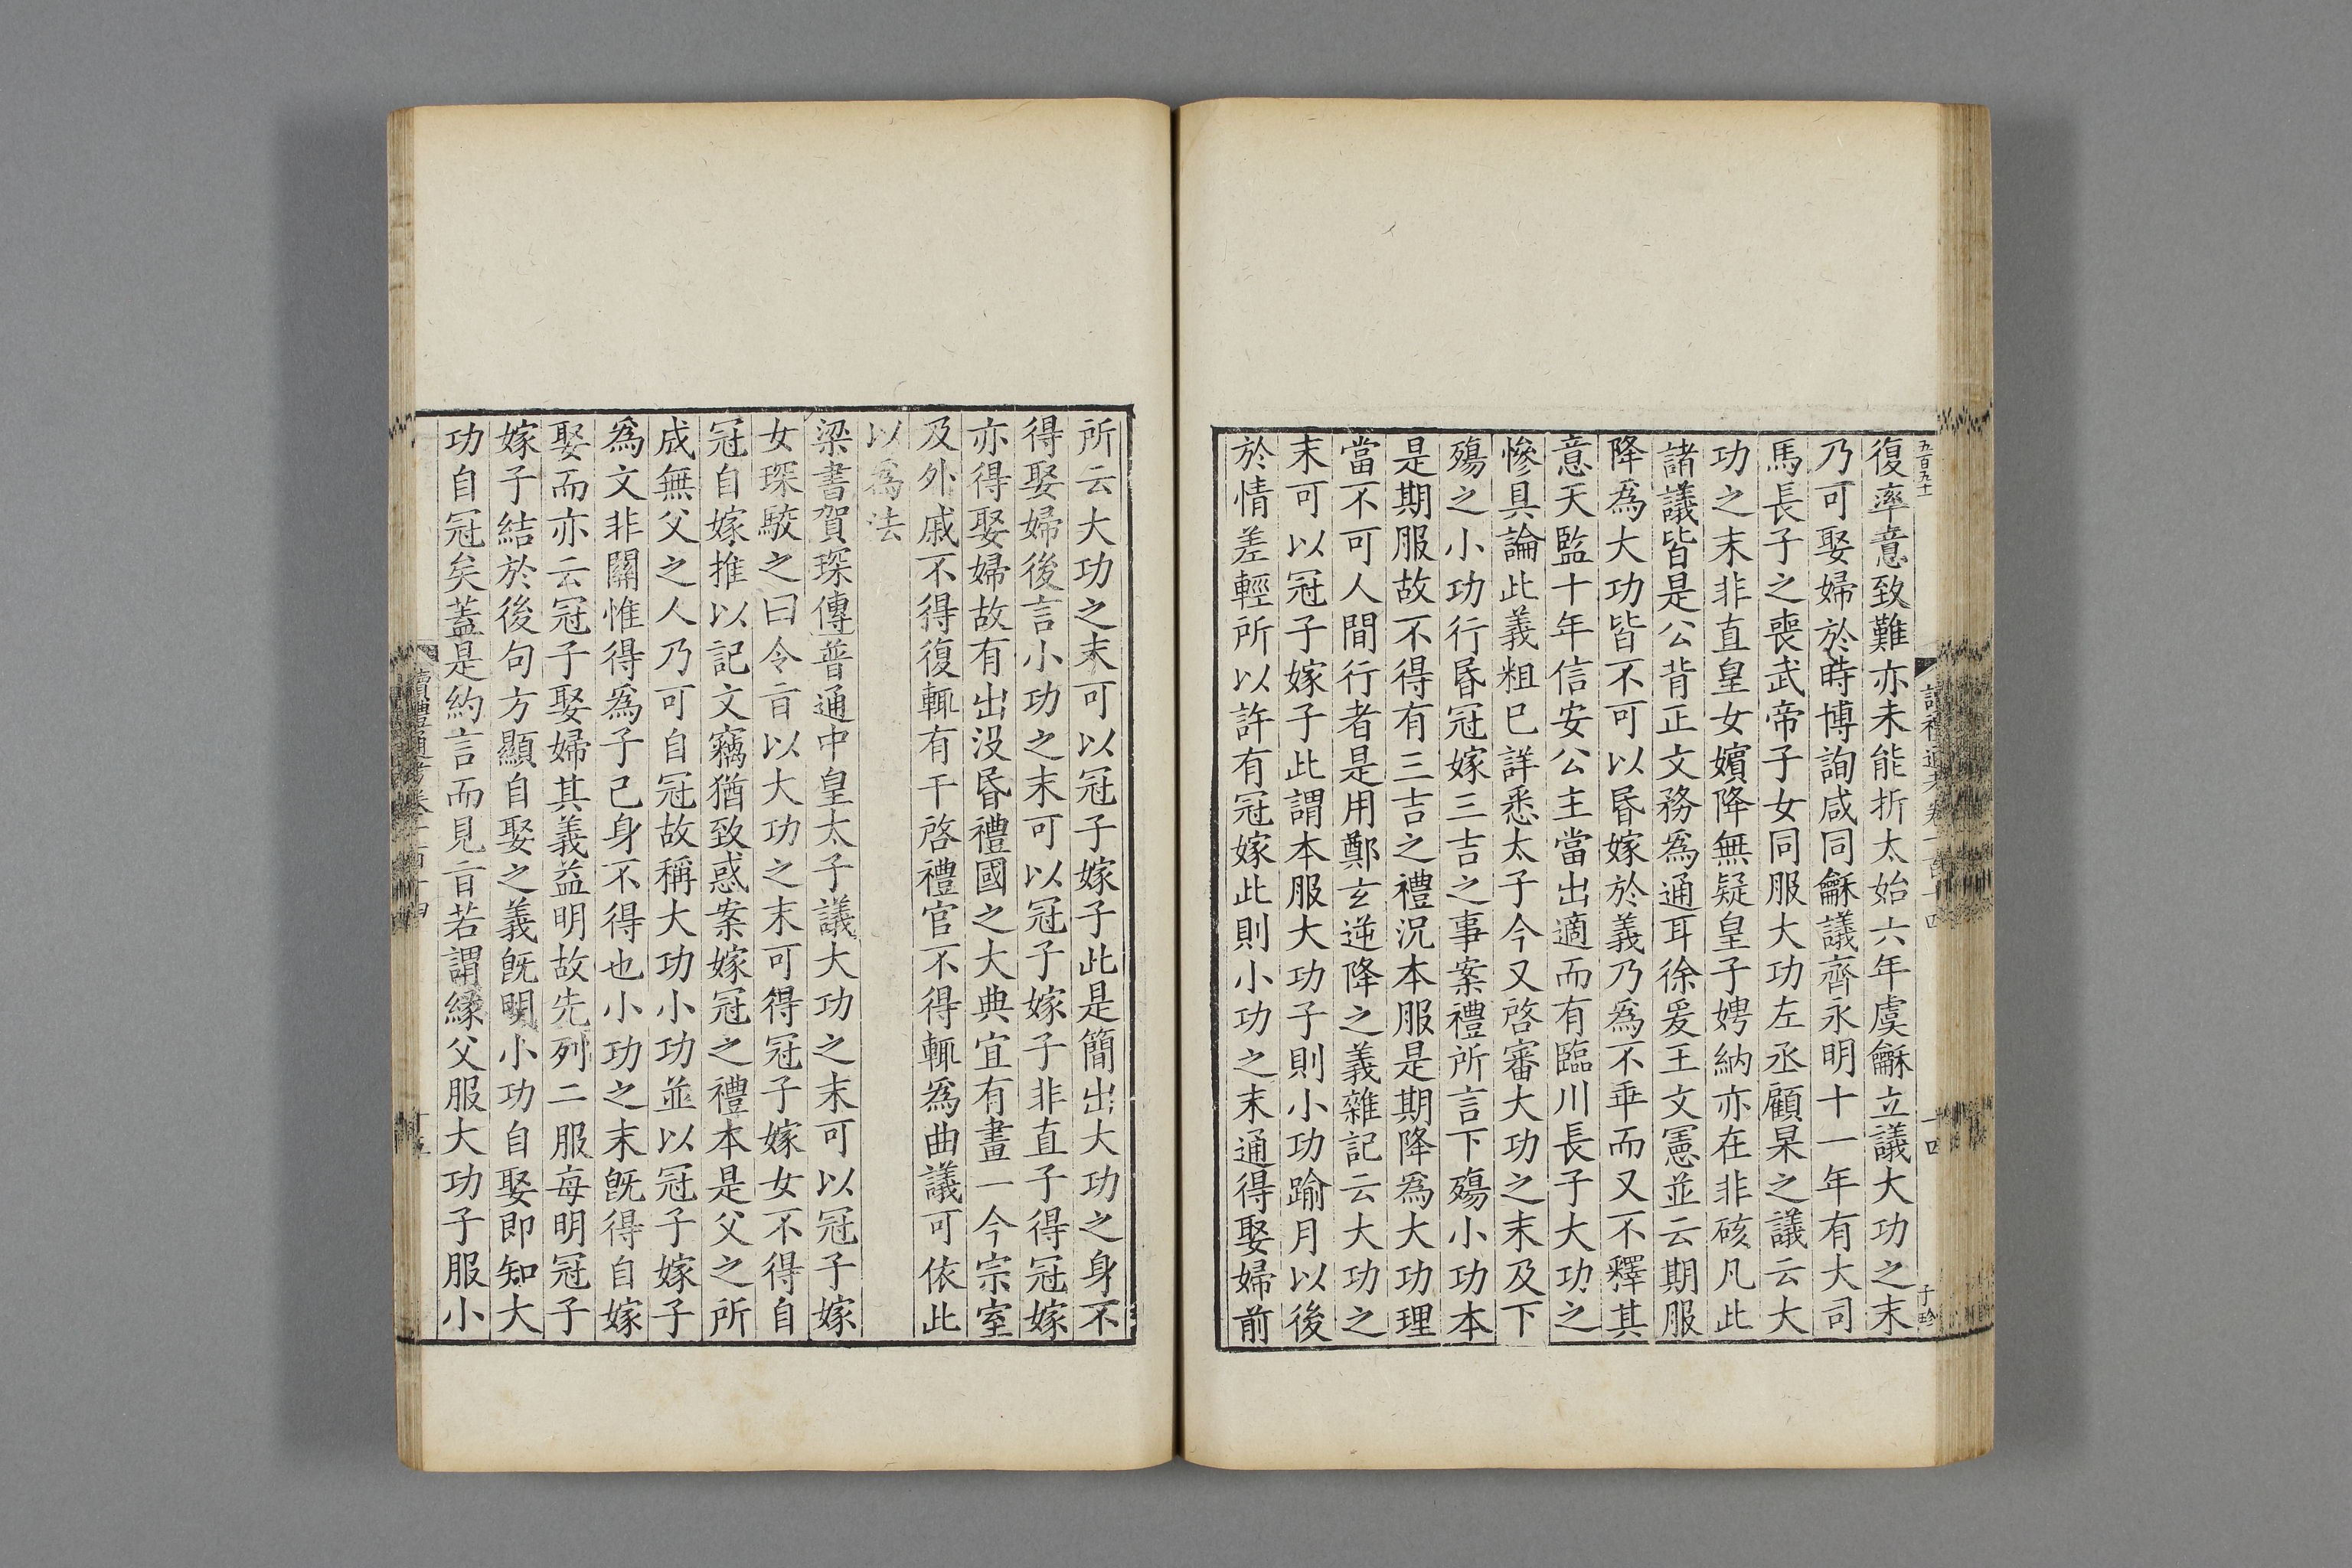 五百九十
復率意致難亦未能折太始六年虞龢立議大功之末
乃可娶婦於時博詢咸同龢議齊永明十一年有大司
馬長子之喪武帝子女同服大功左丞顧杲之議云大
功之末非直皇女嬪降無疑皇子娉納亦在非硋凡此
諸議皆是公背正文務爲通耳徐爰王文憲並云期服
降爲大功皆不可以昬嫁於義乃爲不乖而又不釋其
意天監十年信安公主當出適而有臨川長子大功之
慘具論此義粗已詳悉太子今又啓審大功之末及下
殤之小功行昬冠嫁三吉之事案禮所言下殤小功本
是期服故不得有三吉之禮況本服是期降爲大功理
當不可人間行者是用鄭玄逆降之義雜記云大功之
末可以冠子嫁子此謂本服大功子則小功踰月以後
於情差輕所以許有冠嫁此則小功之末通得娶婦前
所云大功之末可以冠子嫁子此是簡出大功之身不
得娶婦後言小功之末可以冠子嫁子非直子得冠嫁
亦得娶婦故有出沒昬禮國之大典宜有畫一今宗室
及外戚不得復輒有干啓禮官不得輒爲曲議可依此
以爲法
梁書賀琛傳普通中皇太子議大功之末可以冠子嫁
女琛駮之曰令㫖以大功之末可得冠子嫁女不得自
冠自嫁推以記文竊猶致惑案嫁冠之禮本是父之所
成無父之人乃可自冠故稱大功小功並以冠子嫁子
爲文非關惟得爲子己身不得也小功之末旣得自嫁
娶而亦云冠子娶婦其義益明故先列二服每明冠子
嫁子結於後句方顯自娶之義旣明小功自娶即知大
功自冠矣蓋是約言而見㫖若謂緣父服大功子服小
讀禮通考卷一百十四